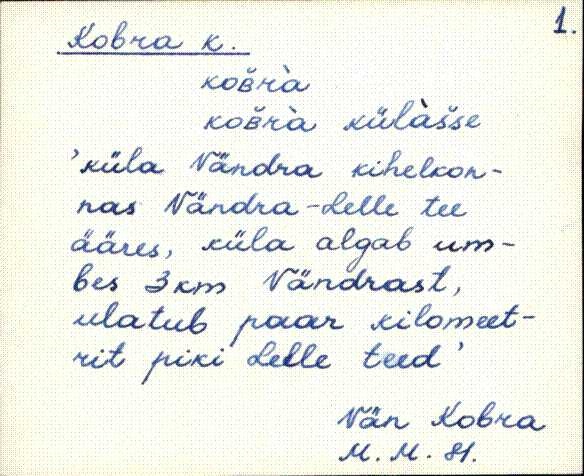 1.
Kobra k.
koʙ̆rà
koʙ̆rà külàšse
'küla Vändra kihelkon-
nas Vändra-Lelle tee
ääres, küla algab um-
bes 3 km Vändrast,
ulatub paar kilomeet-
rit piki Lelle teed'
Vän Kobra
M. M. 81.